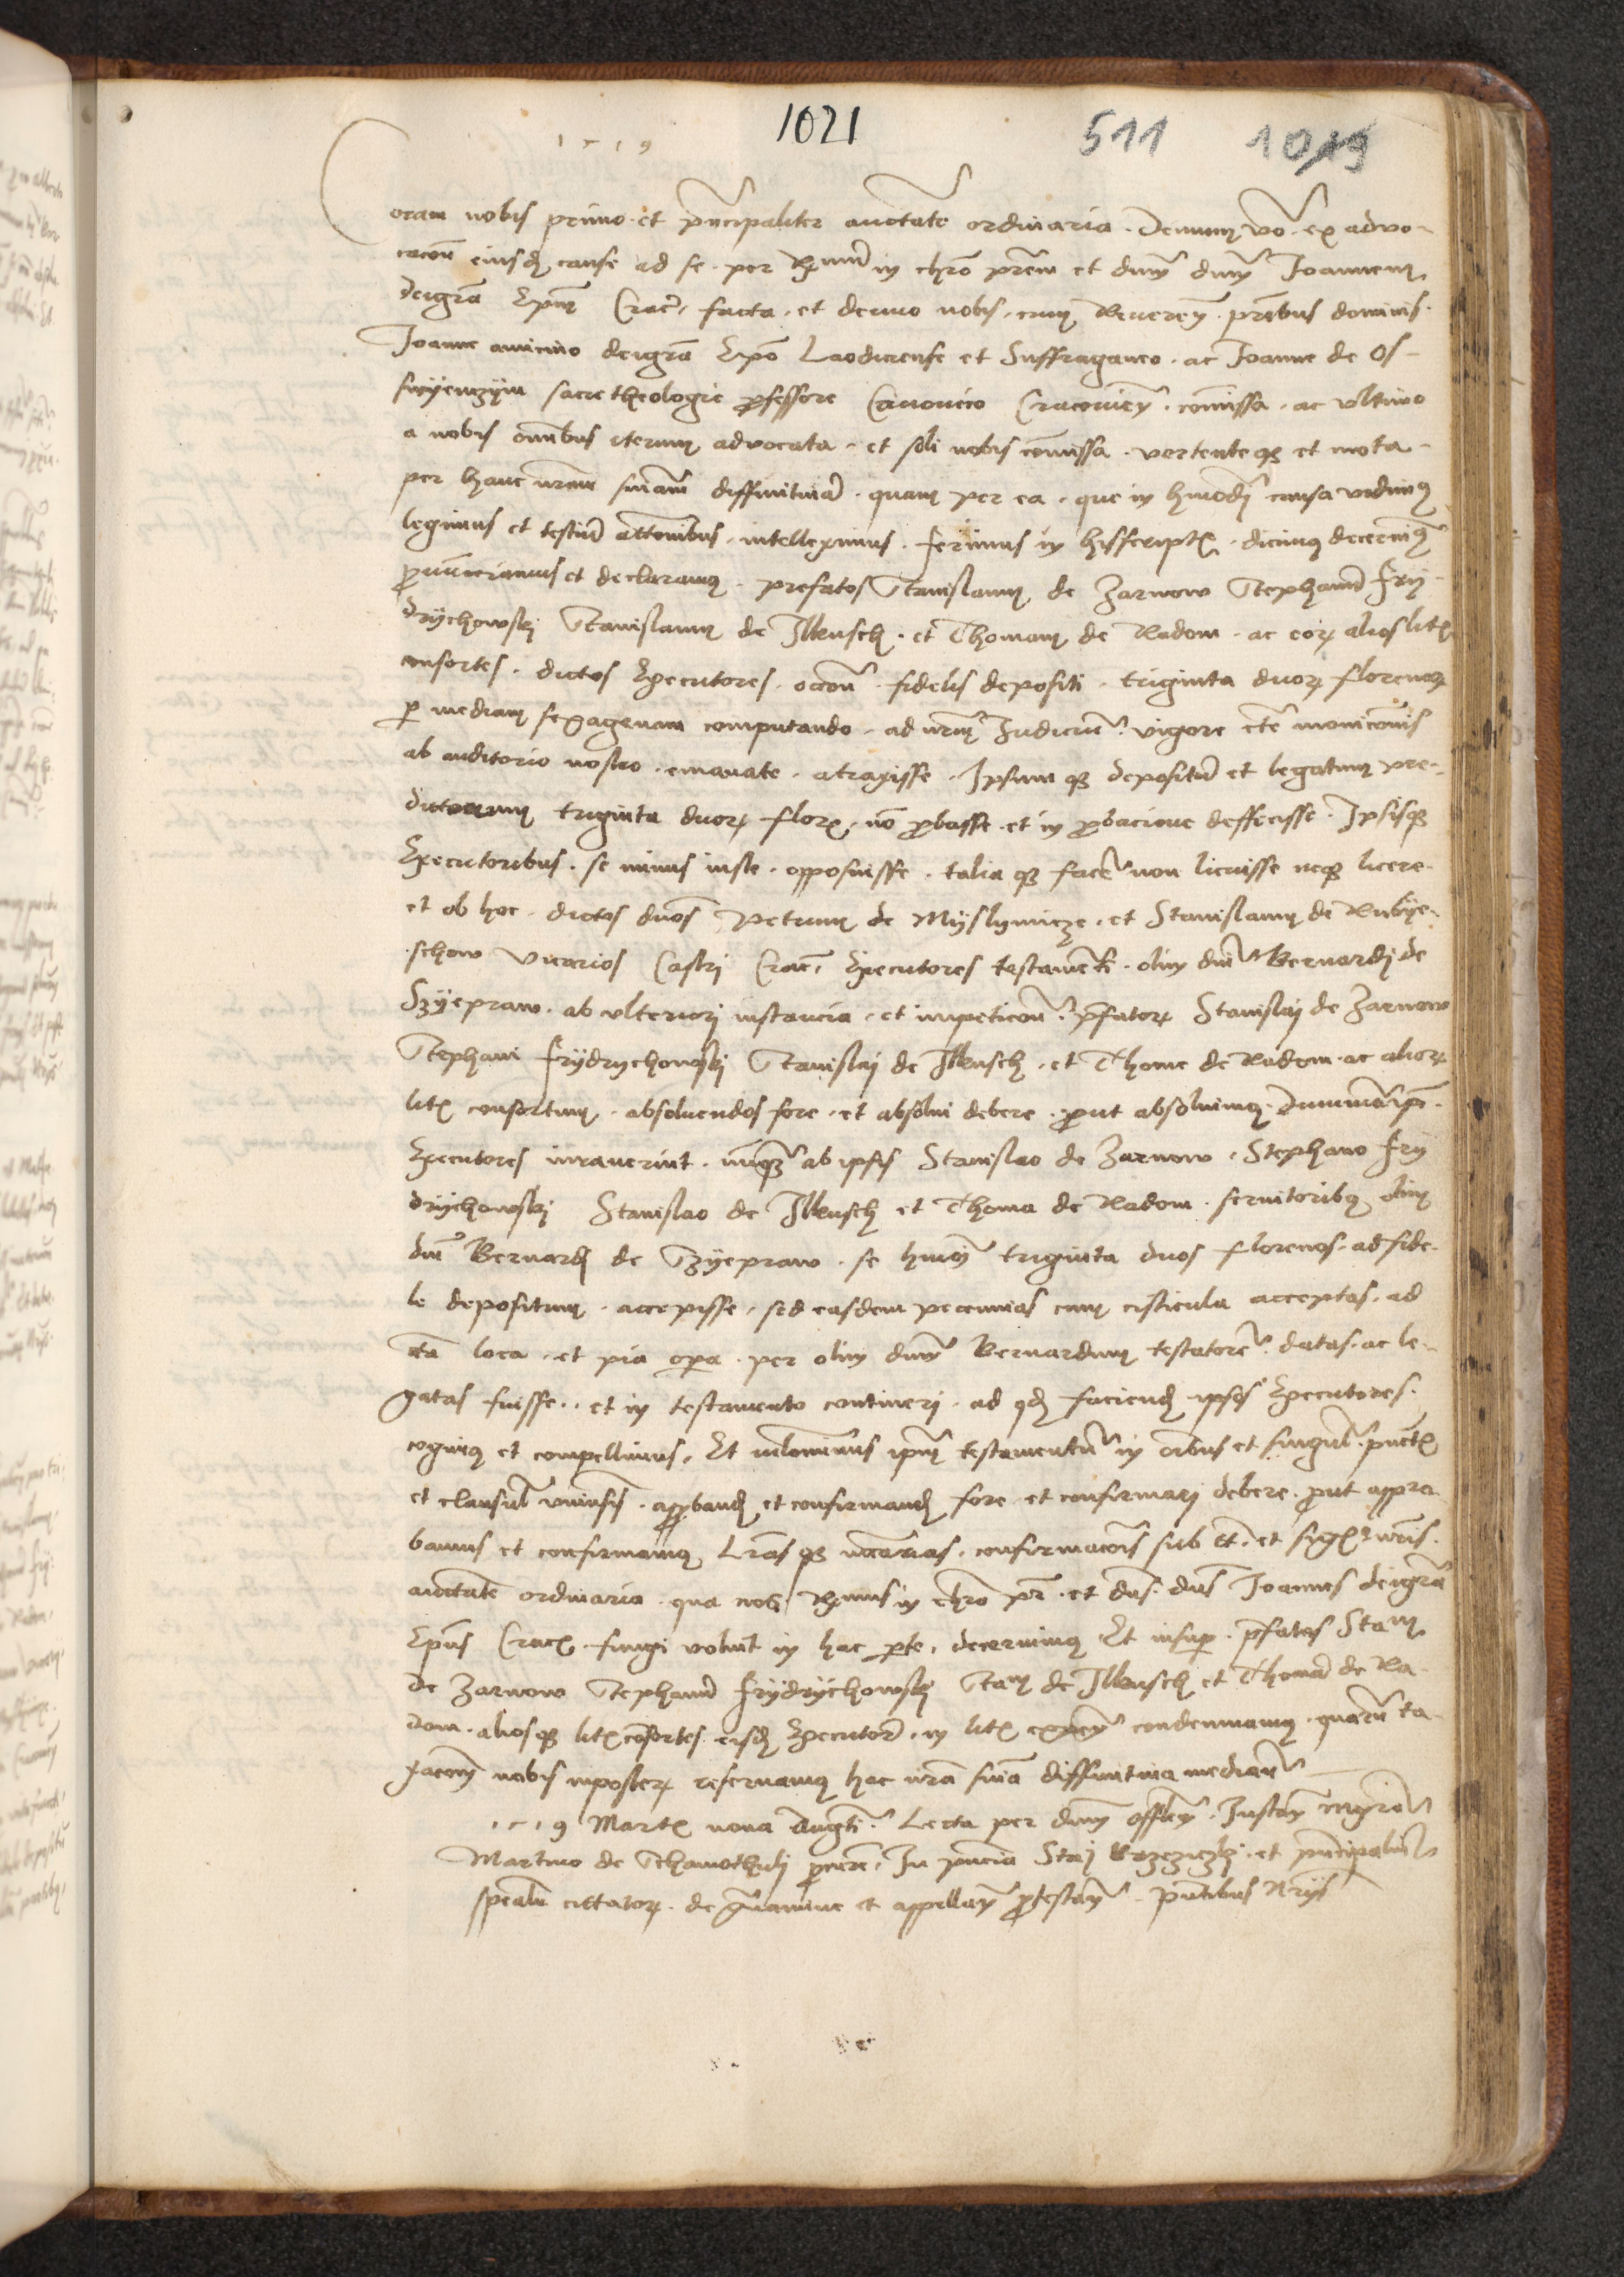 1519 1021 511 1019
Coram nobis primo et principaliter auctate ordinaria. Demum vo ex advo-
cacoe eiusdem cause ad se per Rmum in chro prem et dnm dnm Joannem
dei gra Epum Crac facta et denuo nobis cum Reveren pribus dominis
Joanne amicino dei gra Epo Laodicense et Suffraganeo ac Joanne de Os-
swyenczym sacre theologie professore Canonico Cracovien comissa ac ultimo
a nobis omnibus iterum advocata et soli nobis comissa vertenteque et mota
per hanc nram sniam diffinitivam quam per ea que in hmodi causa vidimus
legimus et testium attonibus intelleximus ferimus in hiis scriptis dicimus decernimus
pronuncciamus et declaramus prefatos Stanislaum de Zarnow Stephanum Fry-
drychowski Stanislaum de Ilkusch et Thomam de Radom ac eorum alios litis
consortes dictos Executores occone fidelis depositi triginta duorum florenorum
per mediam sexagenam computando ad nrum Judicium vigore cte monicois
ab auditorio nostro emanate atraxisse Ipsumque depositum et legatum pre-
dictorum triginta duorum flor no probasse et in probacione deffecisse Ipsisque
Executoribus se minus iuste opposuisse taliaque facere non licuisse neque licere
et ob hoc dictos dnos Petrum de Myslymicze et Stanislaum de Rubye-
schow vicarios Castri Crac Executores testamenti olim dni Bernardi de
Szyepraw ab ulteriori instancia et impeticone prefatorum Stanislai de Zarnow
Stephani Frydrychowski Stanislai de Ilkusch et Thome de Radom ac aliorum
litis consortium absolvendos fore et absolvi debere prout absolvimus dummodo ipi
Executores iuraverint nunquam ab ipsis Stanislao de Zarnow Stephano Fry
drychowski Stanislao de Ilkusch et Thoma de Radom servitoribus olim
dni Bernardi de Szyepraw se hmoi triginta duos florenos ad fide-
le depositum accepisse sed easdem pecunias cum cisticula acceptas ad
cta loca et pia opera per olim dnm Bernardum testatorem datas ac le-
gatas fuisse et in testamento contineri ad quod faciendum ipsos Executores
cogimus et compellimus Et nilominus ipum testamentum in oibus et singulis punctis
et clausulis universis approbandum et confirmandum fore et confirmari debere prout appro-
bamus et confirmamus Lrasque necarias confirmacois sub tit et sigillo nris
auctate ordinaria qua nos Rmus in chro pr et dns dns Joannes dei gra
Epus Crac fungi voluit in hac parte decernimus Et insuper prefatos Stanm
de Zarnow Stephanum Frydrychowski Stanm de Ilkusch et Thomam de Ra-
dom aliosque litis consortes eisdem Executoribus in litis expen condemnamus quarum ta-
xacoem nobis inposterum reservamus hac nra snia diffinitiva mediante
1519 Martis nona Augusti Lecta per dnm Officialem Instan mgro
Martino de Schamothuli procure In pncia Stai Brzezyczki et principalium
spealr cittatorum de gravamine et appellan protestan Pntibus Nriis